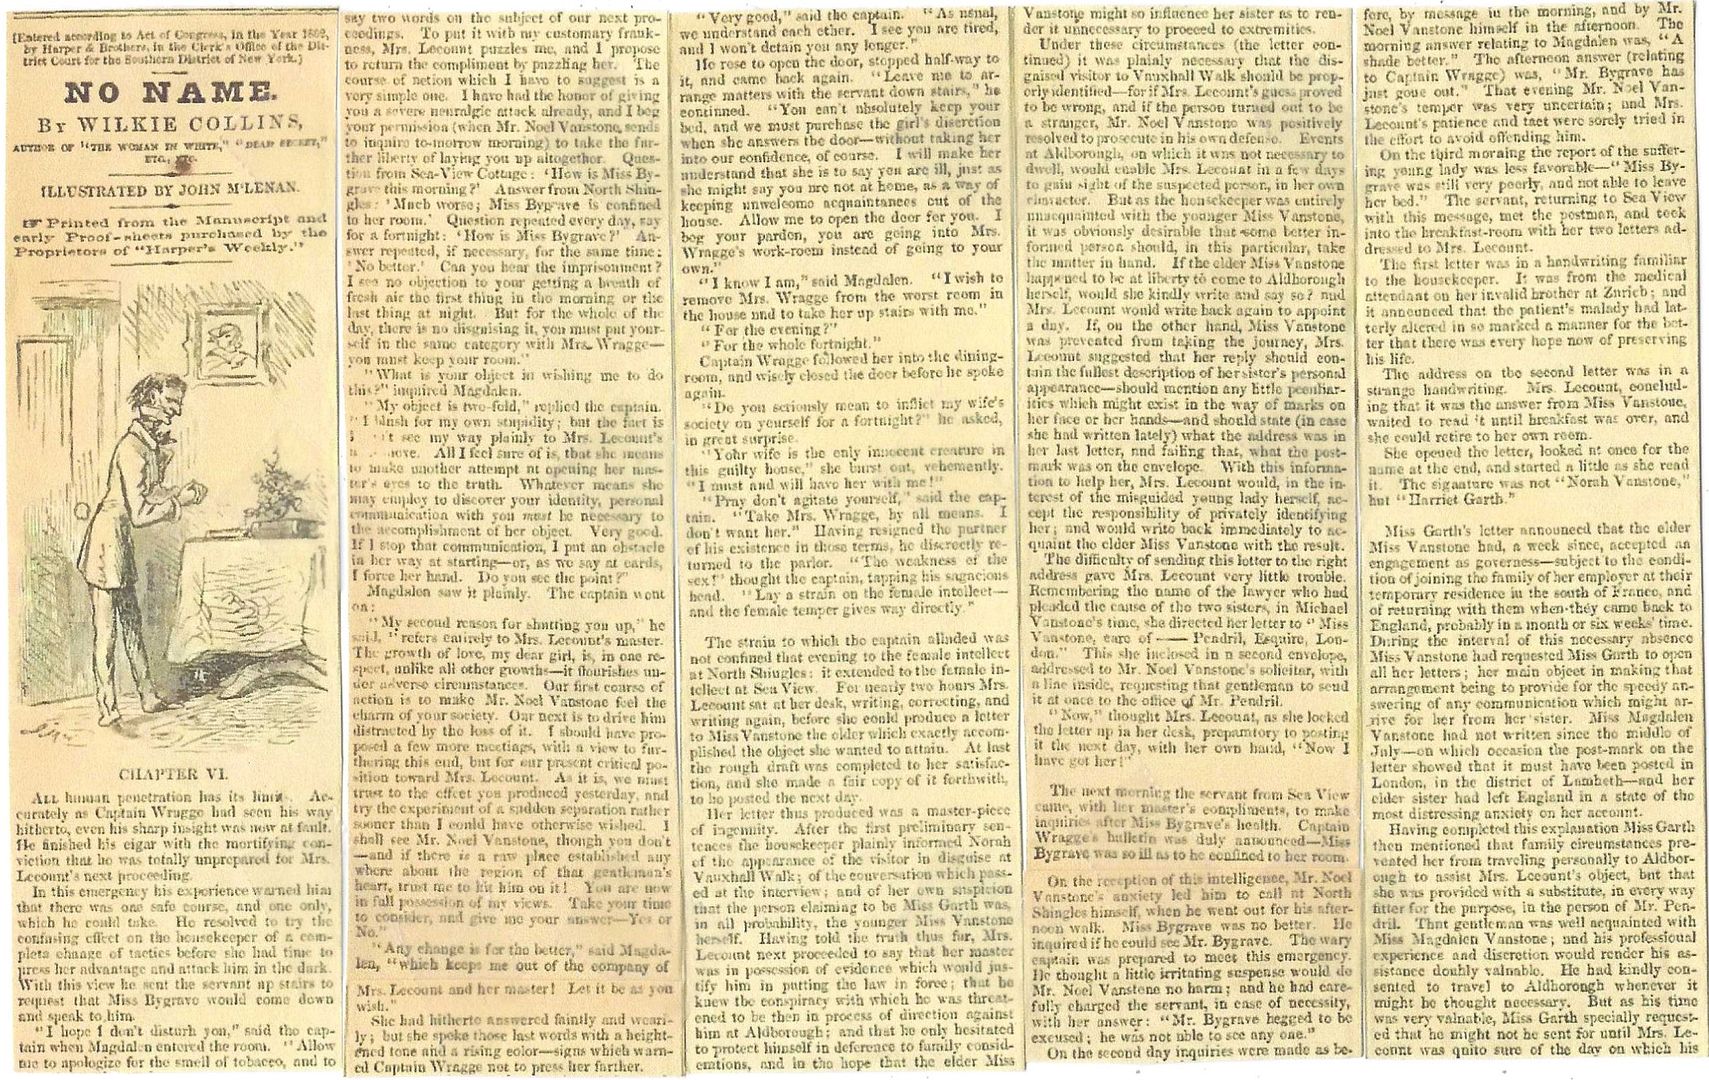 [Entered according to Act of Congress, in the Year 1862,
by Harper & Brothers, in the Clerk's Office of the Dis-
trict Court for the Southern District of New York.]
NO NAME.
By WILKIE COLLINS,
AUTHOR OF "THE WOMAN IN WHITE," "DEAD SECRET,"
ETC., ETC.
ILLUSTRATED BY JOHN M'LENAN.
☞ Printed from the Manuscript and
early Proof-sheets purchased by the
Proprietors of "Harper's Weekly."
CHAPTER VI.
ALL human penetration has its limits. Ac-
curately as Captain Wragge had seen his way
hitherto, even his sharp insight was now at fault.
He finished his cigar with the mortifying con-
viction that he was totally unprepared for Mrs.
Lecount's next proceeding.
In this emergency his experience warned him
that there was one safe course, and one only,
which he could take. He resolved to try the
confusing effect on the housekeeper of a com-
plete change of tactics before she had time to
press her advantage and attack him in the dark.
With this view he sent the servant up stairs to
request that Miss Bygrave would come down
and speak to him.
"I hope I don't disturb you," said the cap-
tain when Magdalen entered the room. "Allow
me to apologize for the smell of tobacco, and to
say two words on the subject of our next pro-
ceedings. To put it with my customary frank-
ness, Mrs. Lecount puzzles me, and I propose
to return the compliment by puzzling her. The
course of action which I have to suggest is a
very simple one. I have had the honor of giving
you a severe neuralgic attack already, and I beg
your permission (when Mr. Noel Vanstone sends
to inquire to-morrow morning) to take the fur-
ther liberty of laying you up altogether. Ques-
tion from Sea-View Cottage: 'How is Miss By-
grave this morning?' Answer from North Shin-
gles: 'Much worse; Miss Bygrave is confined
to her room.' Question repeated every day, say
for a fortnight: 'How is Miss Bygrave?' An-
swer repeated, if necessary, for the same time:
'No better.' Can you bear the imprisonment?
I see no objection to your getting a breath of
fresh air the first thing in the morning or the
last thing at night. But for the whole of the
day, there is no disguising it, you must put your-
self in the same category with Mrs. Wragge—
you must keep your room."
"What is your object in wishing me to do
this?" inquired Magdalen.
"My object is two-fold," replied the captain.
"I blush for my own stupidity; but the fact is
I see my way plainly to Mrs. Lecount's
move. All I feel sure of is, that she means
to make another attempt at opening her mas-
ter's eyes to the truth. Whatever means she
may employ to discover your identity, personal
communication with you must be necessary to
the accomplishment of her object. Very good.
If I stop that communication, I put an obstacle
in her way at starting—or, as we say at cards,
I force her hand. Do you see the point?"
Magdalen saw it plainly. The captain went
on:
"My second reason for shutting you up," he
said, "refers entirely to Mrs. Lecount's master.
The growth of love, my dear girl, is, in one re-
spect, unlike all other growths—it flourishes un-
der adverse circumstances. Our first course of
action is to make Mr. Noel Vanstone feel the
charm of your society. Our next is to drive him
distracted by the loss of it. I should have pro-
posed a few more meetings, with a view to fur-
thering this end, but for our present critical po-
sition toward Mrs. Lecount. As it is, we must
trust to the effect you produced yesterday, and
try the experiment of a sudden separation rather
sooner than I could have otherwise wished. I
shall see Mr. Noel Vanstone, though you don't
—and if there is a raw place established any
where about the region of that gentleman's
heart, trust me to hit him on it! You are now
in full possession of my views. Take your time
to consider, and give me your answer—Yes or
No."
"Any change is for the better," said Magda-
len, "which keeps me out of the company of
Mrs. Lecount and her master! Let it be as you
wish."
She had hitherto answered faintly and weari-
ly; but she spoke those last words with a height-
ened tone and a rising color—signs which warn-
ed Captain Wragge not to press her farther.
"Very good," said the captain. "As usual,
we understand each other. I see you are tired,
and I won't detain you any longer."
He rose to open the door, stopped half-way to
it, and came back again. "Leave me to ar-
range matters with the servant down stairs," he
continued. "You can't absolutely keep your
bed, and we must purchase the girl's discretion
when she answers the door—without taking her
into our confidence, of course. I will make her
understand that she is to say you are ill, just as
she might say you are not at home, as a way of
keeping unwelcome acquaintances out of the
house. Allow me to open the door for you. I
beg your pardon, you are going into Mrs.
Wragge's work-room instead of going to your
own."
"I know I am," said Magdalen. "I wish to
remove Mrs. Wragge from the worst room in
the house and to take her up stairs with me."
"For the evening?"
"For the whole fortnight."
Captain Wragge followed her into the dining-
room, and wisely closed the door before he spoke
again.
"Do you seriously mean to inflict my wife's
society on yourself for a fortnight?" he asked,
in great surprise.
"Your wife is the only innocent creature in
this guilty house," she burst out, vehemently.
"I must and will have her with me!"
"Pray don't agitate yourself," said the cap-
tain. "Take Mrs. Wragge, by all means. I
don't want her." Having resigned the partner
of his existence in those terms, he discreetly re-
turned to the parlor. "The weakness of the
sex!" thought the captain, tapping his sagacious
head. "Lay a strain on the female intellect—
and the female temper gives way directly."
The strain to which the captain alluded was
not confined that evening to the female intellect
at North Shingles: it extended to the female in-
tellect at Sea View. For nearly two hours Mrs.
Lecount sat at her desk, writing, correcting, and
writing again, before she could produce a letter
to Miss Vanstone the elder which exactly accom-
plished the object she wanted to attain. At last
the rough draft was completed to her satisfac-
tion, and she made a fair copy of it forthwith,
to be posted the next day.
Her letter thus produced was a master-piece
of ingenuity. After the first preliminary sen-
tences the housekeeper plainly informed Norah
of the appearance of the visitor in disguise at
Vauxhall Walk; of the conversation which pass-
ed at the interview; and of her own suspicion
that the person claiming to be Miss Garth was,
in all probability, the younger Miss Vanstone
herself. Having told the truth thus far, Mrs.
Lecount next proceeded to say that her master
was in possession of evidence which would jus-
tify him in putting the law in force; that he
knew the conspiracy with which he was threat-
ened to be then in process of direction against
him at Aldborough; and that he only hesitated
to protect himself in deference to family consid-
erations, and in the hope that the elder Miss
Vanstone might so influence her sister as to ren-
der it unnecessary to proceed to extremities.
Under these circumstances (the letter con-
tinued) it was plainly necessary that the dis-
guised visitor to Vauxhall Walk should be prop-
erly identified—for if Mrs. Lecount's guess proved
to be wrong, and if the person turned out to be
a stranger, Mr. Noel Vanstone was positively
resolved to prosecute in his own defense. Events
at Aldborough, on which it was not necessary to
dwell, would enable Mrs. Lecount in a few days
to gain sight of the suspected person, in her own
character. But as the housekeeper was entirely
unacquainted with the younger Miss Vanstone,
it was obviously desirable that some better in-
formed person should, in this particular, take
the matter in hand. If the elder Miss Vanstone
happened to be at liberty to come to Aldborough
herself, would she kindly write and say so? and
Mrs. Lecount would write back again to appoint
a day. If, on the other hand, Miss Vanstone
was prevented from taking the journey, Mrs.
Lecount suggested that her reply should con-
tain the fullest description of her sister's personal
appearance—should mention any little peculiar-
ities which might exist in the way of marks on
her face or her hands—and should state (in case
she had written lately) what the address was in
her last letter, and failing that, what the post-
mark was on the envelope. With this informa-
tion to help her, Mrs. Lecount would, in the in-
terest of the misguided young lady herself, ac-
cept the responsibility of privately identifying
her; and would write back immediately to ac-
quaint the elder Miss Vanstone with the result.
The difficulty of sending this letter to the right
address gave Mrs. Lecount very little trouble.
Remembering the name of the lawyer who had
pleaded the cause of the two sisters, in Michael
Vanstone's time, she directed her letter to "Miss
Vanstone, care of —— Pendril, Esquire, Lon-
don." This she inclosed in a second envelope,
addressed to Mr. Noel Vanstone's solicitor, with
a line inside, requesting that gentleman to send
it at once to the office of Mr. Pendril.
"Now," thought Mrs. Lecount, as she locked
the letter up in her desk, preparatory to posting
it the next day, with her own hand, "Now I
have got her!"
The next morning the servant from Sea View
came, with her master's compliments, to make
inquiries after Miss Bygrave's health. Captain
Wragge's bulletin was duly announced—Miss
Bygrave was so ill as to be confined to her room.
On the reception of this intelligence, Mr. Noel
Vanstone's anxiety led him to call at North
Shingles himself, when he went out for his after-
noon walk. Miss Bygrave was no better. He
inquired if he could see Mr. Bygrave. The wary
captain was prepared to meet this emergency.
He thought a little irritating suspense would do
Mr. Noel Vanstone no harm; and he had care-
fully charged the servant, in case of necessity,
with her answer: "Mr. Bygrave begged to be
excused; he was not able to see any one."
On the second day inquiries were made as be-
fore, by message in the morning, and by Mr.
Noel Vanstone himself in the afternoon. The
morning answer relating to Magdalen was, "A
shade better." The afternoon answer (relating
to Captain Wragge) was, "Mr. Bygrave has
just gone out." That evening Mr. Noel Van-
stone's temper was very uncertain; and Mrs.
Lecount's patience and tact were sorely tried in
the effort to avoid offending him.
On the third morning the report of the suffer-
ing young lady was less favorable—"Miss By-
grave was still very poorly, and not able to leave
her bed." The servant, returning to Sea View
with this message, met the postman, and took
into the breakfast-room with her two letters ad-
dressed to Mrs. Lecount.
The first letter was in a handwriting familiar
to the housekeeper. It was from the medical
attendant on her invalid brother at Zurich; and
it announced that the patient's malady had lat-
terly altered in so marked a manner for the bet-
ter that there was every hope now of preserving
his life.
The address on the second letter was in a
strange handwriting. Mrs. Lecount, conclud-
ing that it was the answer from Miss Vanstone,
waited to read it until breakfast was over, and
she could retire to her own room.
She opened the letter, looked at once for the
name at the end, and started a little as she read
it. The signature was not "Norah Vanstone,"
but "Harriet Garth."
Miss Garth's letter announced that the elder
Miss Vanstone had, a week since, accepted an
engagement as governess—subject to the condi-
tion of joining the family of her employer at their
temporary residence in the south of France, and
of returning with them when they came back to
England, probably in a month or six weeks' time.
During the interval of this necessary absence
Miss Vanstone had requested Miss Garth to open
all her letters; her main object in making that
arrangement being to provide for the speedy an-
swering of any communication which might ar-
rive for her from her sister. Miss Magdalen
Vanstone had not written since the middle of
July—on which occasion the post-mark on the
letter showed that it must have been posted in
London, in the district of Lambeth—and her
elder sister had left England in a state of the
most distressing anxiety on her account.
Having completed this explanation Miss Garth
then mentioned that family circumstances pre-
vented her from traveling personally to Aldbor-
ough to assist Mrs. Lecount's object, but that
she was provided with a substitute, in every way
fitter for the purpose, in the person of Mr. Pen-
dril. That gentleman was well acquainted with
Miss Magdalen Vanstone; and his professional
experience and discretion would render his as-
sistance doubly valuable. He had kindly con-
sented to travel to Aldborough whenever it
might be thought necessary. But as his time
was very valuable, Miss Garth specially request-
ed that he might not be sent for until Mrs. Le-
count was quite sure of the day on which his